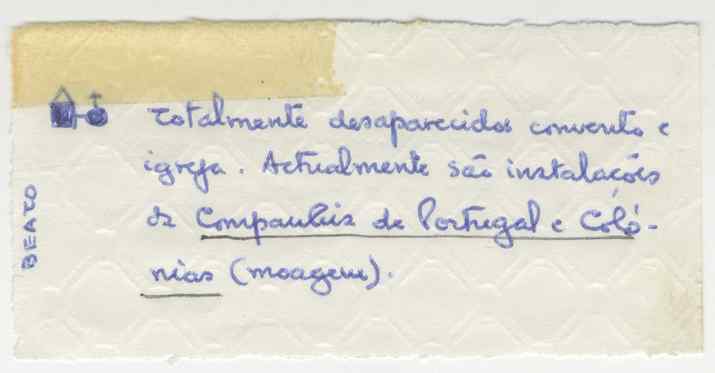 Totalmente desaparecidos convento e
igreja. Actualmente são instalações
da Companhia de Portugal e Coló-
nias (moagem).
BEATO